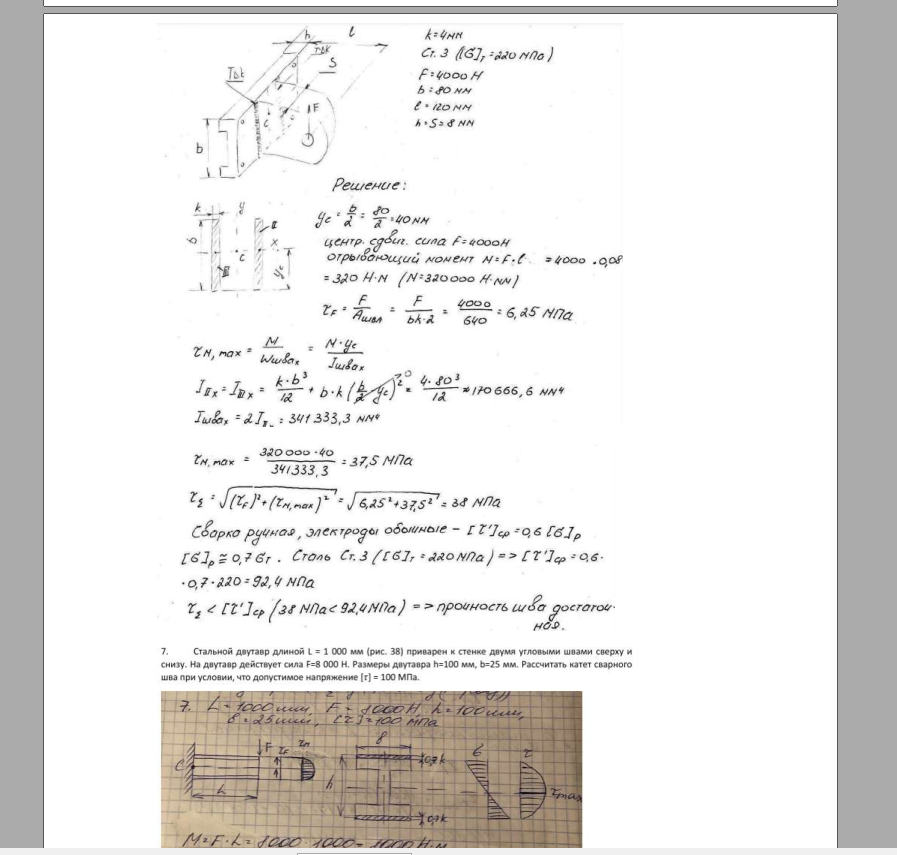 h
l
k=4мм
T▷k
Ст. 3 ([G]т =220 МПа)
S
T▷k
F=4000 Н
b = 80 мм
F
c
l = 120 мм
h=S=8 мм
b
Решение:
k
y
yc = b/2 = 80/2 = 40 мм
II
b
x
центр. сдвиг. сила F=4000Н
c
отрывающий момент M=F·l = 4000 · 0,08
III
yc
= 320 Н·м (M=320000 Н·мм)
τF = F/Aшвл = F/bk·2 = 4000/640 = 6,25 МПа
τM, max = M/Wшвах = M·yc/Iшвах
IIIx = IIIIx = k·b³/12 + b·k(b/2 yc)² 0 = 4·80³/12 ≈ 170666,6 мм⁴
Iшвах = 2III- = 341333,3 мм⁴
τM, max = 320000·40/341333,3 = 37,5 МПа
τΣ = √(τF)²+(τM,max)² = √6,25²+37,5² = 38 МПа
Сварка ручная, электроды обычные – [τ']ср =0,6 [G]р
[G]р ≅ 0,7Gт. Сталь Ст. 3 ([G]т =220 МПа) => [τ']ср =0,6·
·0,7·220=92,4 МПа
τΣ < [τ']ср (38 МПа<92,4МПа) => прочность шва достаточ-
ная.
7. Стальной двутавр длиной L = 1 000 мм (рис. 38) приварен к стенке двумя угловыми швами сверху и
снизу. На двутавр действует сила F=8 000 Н. Размеры двутавра h=100 мм, b=25 мм. Рассчитать катет сварного
шва при условии, что допустимое напряжение [τ] = 100 МПа.
7. L=1000 мм, F = 8000 Н, h=100 мм,
в = 25 мм, [τ]=100 МПа
в
F τF τм
0,7k
б
τ
C
h
τmax
L
0,7k
M=F·L= 8000·1000=